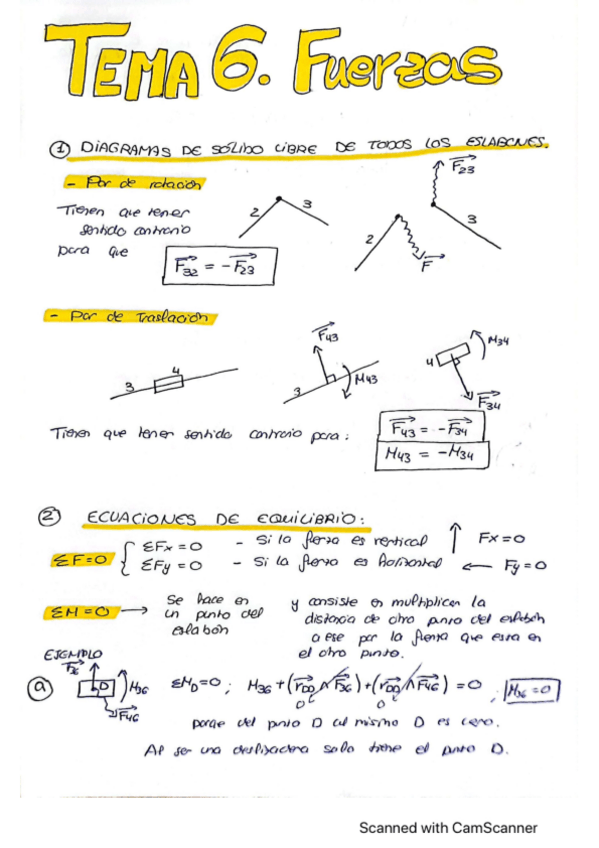 TEMA 6. Fuerzas
① DIAGRAMAS DE SÓLIDO LIBRE DE TODOS LOS ESLABONES.
- Par de rotación
Tienen que tener
sentido contrario
para que
F32 = -F23
2 3
2 F
F23
3
- Par de traslación
3 4
F43
3 M43
4 M34
F34
Tienen que tener sentido contrario para:
F43 = -F34
M43 = -M34
② ECUACIONES DE EQUILIBRIO:
ΣF=0 { ΣFx = 0 - Si la fuerza es vertical ↑ Fx=0
ΣFy = 0 - Si la fuerza es horizontal ← Fy=0
ΣM=0 → Se hace en
un punto del
eslabón
y consiste en multiplicar la
distancia de otro punto del eslabón
a ese por la fuerza que esta en
el otro punto.
EJEMPLO
ⓐ F36 D M36 F46
ΣMD=0; M36+(rDD∧F36)+(rDD∧F46) = 0; M36=0
0 0
porque del punto D al mismo D es cero.
Al ser una deslizadera solo tiene el punto D.
Scanned with CamScanner